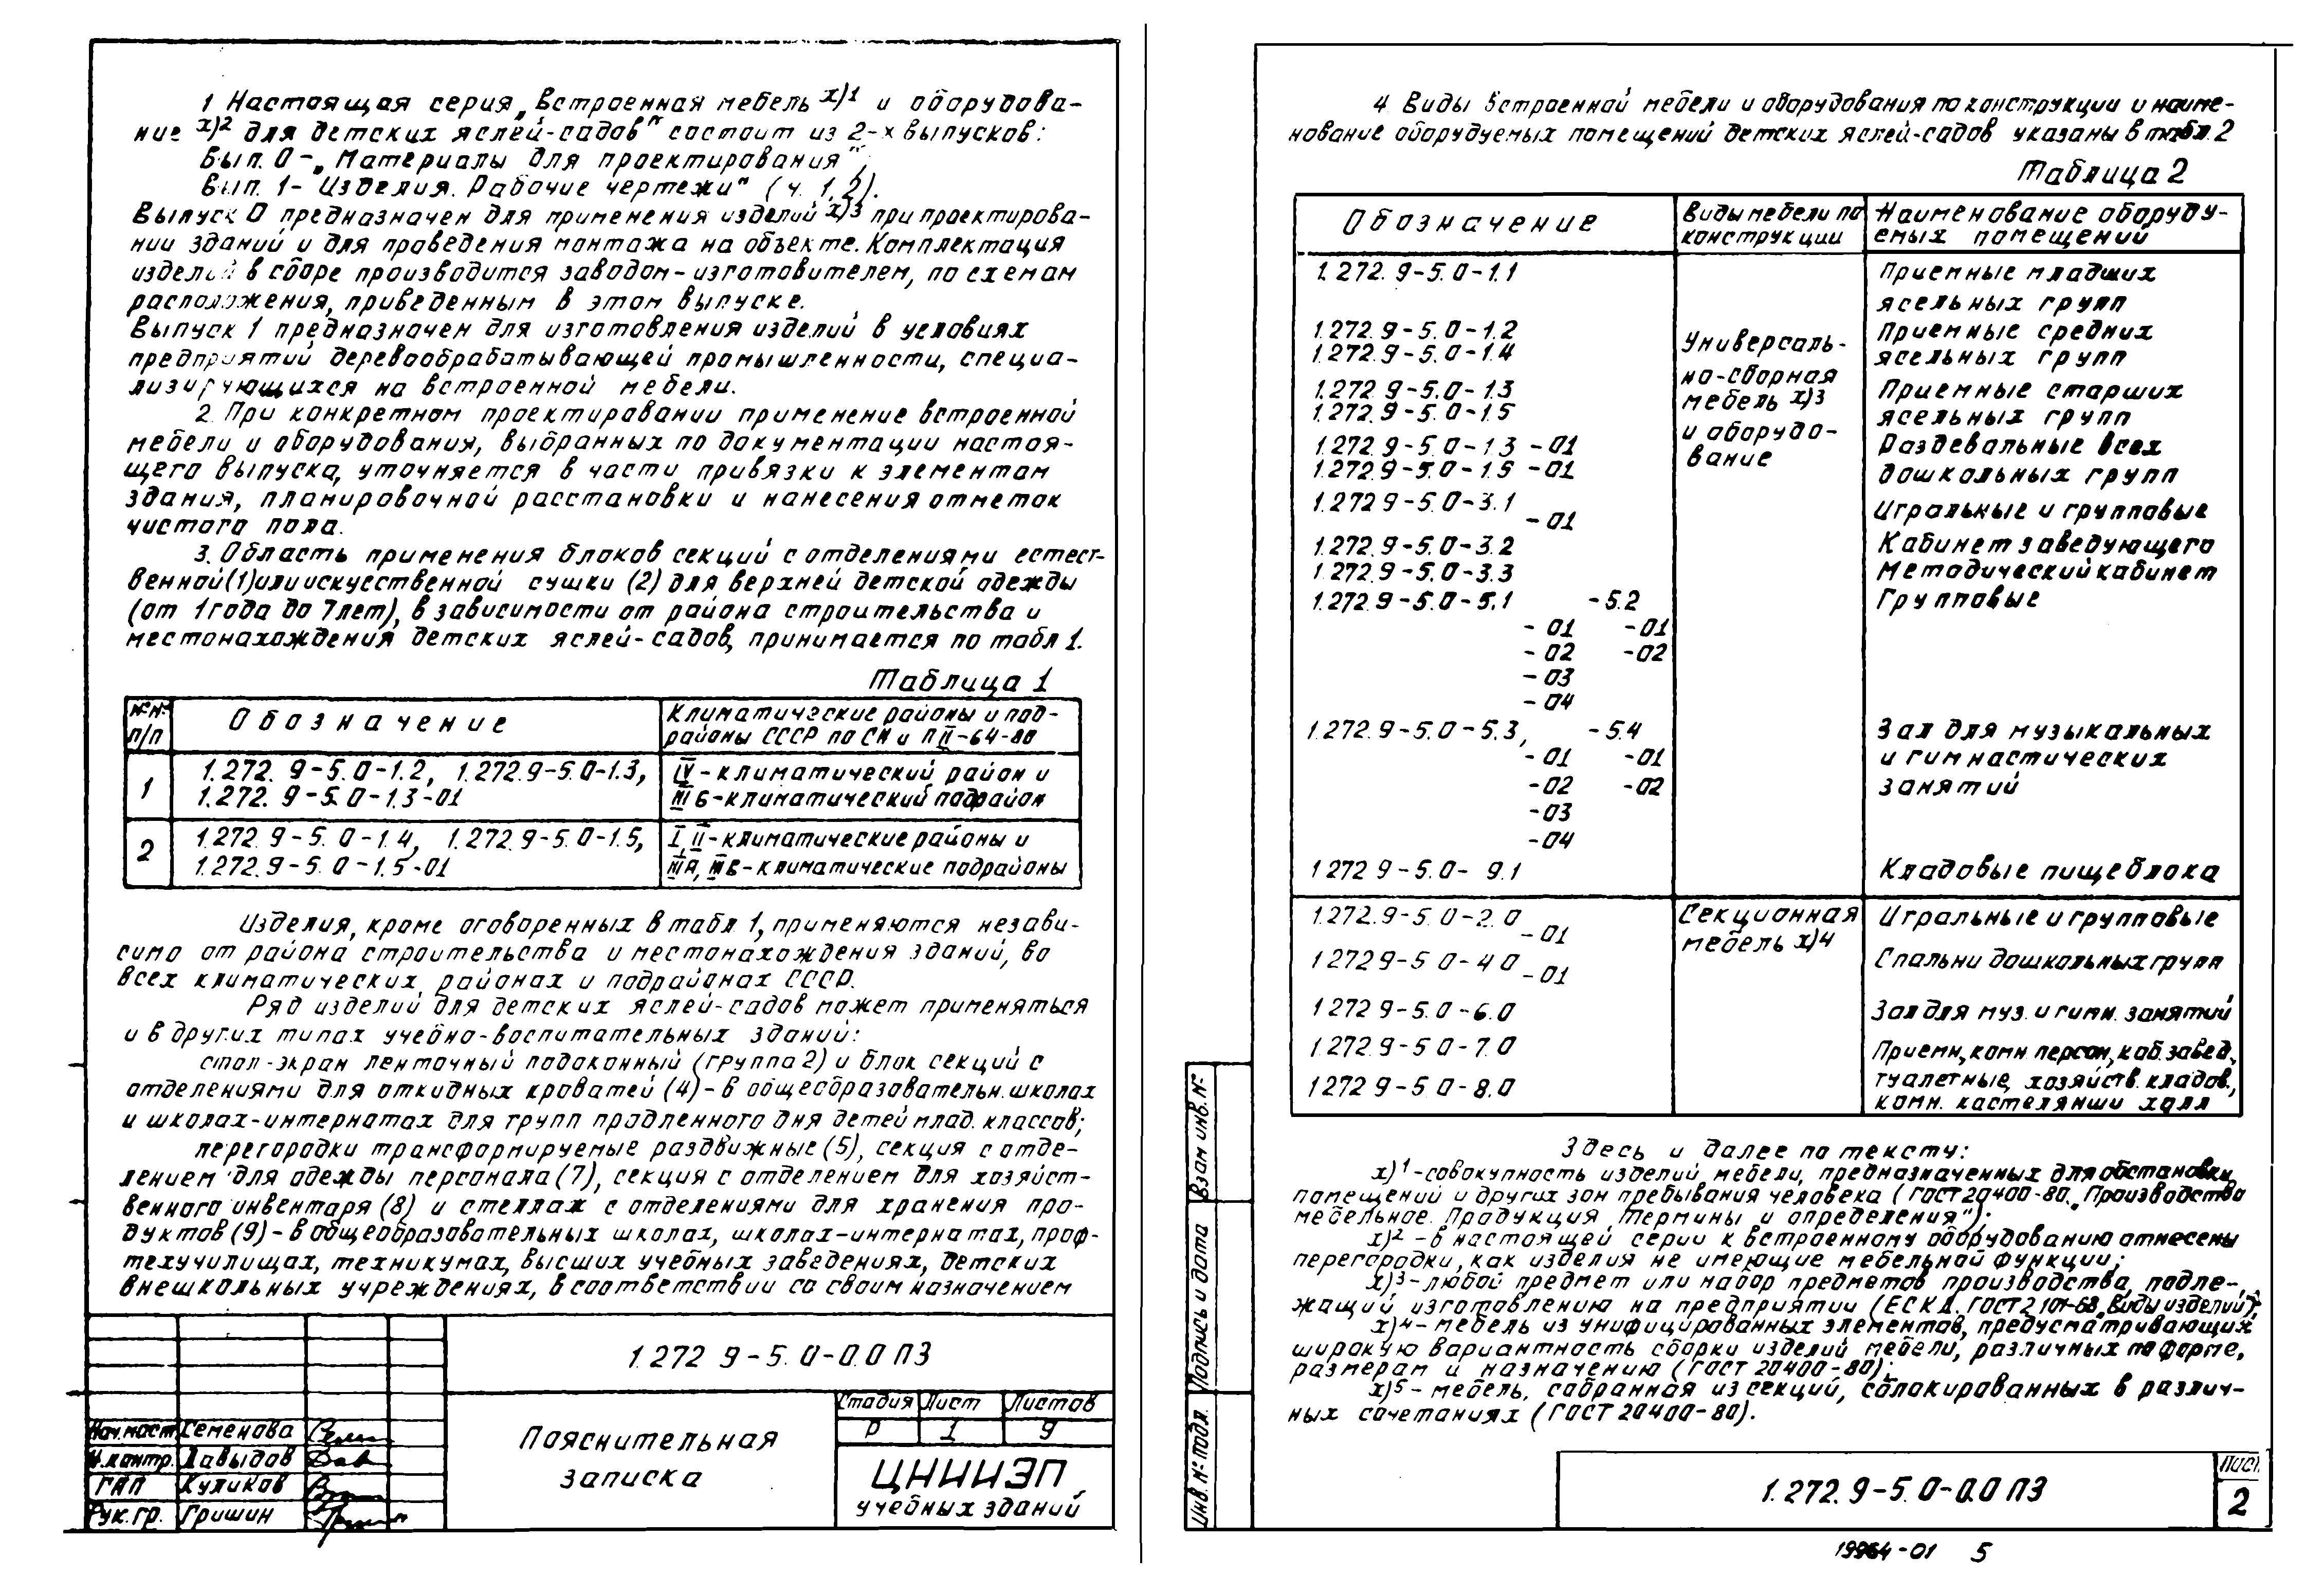 1 Настоящая серия „Встроенная мебель х)1 и оборудова-
ние х)2 для детских яслей-садов" состоит из 2-х выпусков:
Вып. 0 -„Материалы для проектирования";
Вып. 1- "Изделия. Рабочие чертежи" (ч. 1,2).
Выпуск 0 предназначен для применения изделий х)3 при проектирова-
нии зданий и для проведения монтажа на объекте. Комплектация
изделий в сборе производится заводом-изготовителем, по схемам
расположения, приведенным в этом выпуске.
Выпуск 1 предназначен для изготовления изделий в условиях
предприятий деревообрабатывающей промышленности, специа-
лизирующихся на встроенной мебели.
2. При конкретном проектировании применение встроенной
мебели и оборудования, выбранных по документации настоя-
щего выпуска, уточняется в части привязки к элементам
здания, планировочной расстановки и нанесения отметок
чистого пола.
3. Область применения блоков секций с отделениями естест-
венной (1) или искуественной сушки (2) для верхней детской одежды
(от 1 года до 7 лет), в зависимости от района строительства и
местонахождения детских яслей-садов, принимается по табл 1.
Таблица 1
№№ п/п
Обозначение
Климатические районы и под-
районы СССР по СН и П II-64-80
1
1.272. 9-5.0-1.2, 1.272.9-5.0-1.3,
1.272. 9-5.0-1.3-01
IV-климатический район и
III Б-климатический подрайон
2
1.272 9-5. 0-1.4, 1.272.9-5.0-1.5,
1.272. 9-5. 0-1.5-01
I, II-климатические районы и
III А, III В-климатические подрайоны
Изделия, кроме оговоренных в табл 1, применяются незави-
симо от района строительства и местонахождения зданий, во
всех климатических районах и подрайонах СССР.
Ряд изделий для детских яслей-садов может применяться
и в других типах учебно-воспитательных зданий:
стол-экран ленточный подоконный (группа 2) и блок секций с
отделениями для откидных кроватей (4)-в общеобразовательн. школах
и школах-интернатах для групп продленного дня детей млад. классов;
перегородки трансформируемые раздвижные (5), секция с отде-
лением для одежды персонала (7), секция с отделением для хозяйст-
венного инвентаря (8) и стеллаж с отделениями для хранения про-
дуктов (9)-в общеобразовательных школах, школах-интернатах, проф-
техучилищах, техникумах, высших учебных заведениях, детских
внешкольных учреждениях, в соответствии со своим назначением
1.272 9-5. 0-0.0 ПЗ
Нач.маст. Семенова
Н.контр. Давыдов
ГАП Куликов
Рук.гр. Гришин
Пояснительная
записка
Стадия Лист Листов
Р 1 9
ЦНИИЭП
учебных зданий
4. Виды встроенной мебели и оборудования по конструкции и наиме-
нование оборудуемых помещений детских яслей-садов указаны в табл. 2
Таблица 2
Обозначение
Виды мебели по
конструкции
Наименование оборуду-
емых помещений
1.272. 9-5.0-1.1
Приемные младших
ясельных групп
1.272. 9-5.0-1.2
1.272. 9-5.0-1.4
Приемные средних
ясельных групп
Универсаль-
но-сборная
мебель х)3
и оборудо-
вание
1.272 9-5.0-1.3
1.272. 9-5.0-1.5
Приемные старших
ясельных групп
1.272 9-5.0-1.3 -01
1.272. 9-5.0-1.5 -01
Раздевальные всех
дошкольных групп
1.272 9-5.0-3.1
-01
Игральные и групповые
1.272. 9-5.0-3.2
Кабинет заведующего
1.272. 9-5.0-3.3
Методический кабинет
1.272. 9-5.0-5.1 -5.2
Групповые
-01 -01
-02 -02
-03
-04
1.272. 9-5.0-5.3, -5.4
Зал для музыкальных
-01 -01
и гимнастических
-02 -02
занятий
-03
-04
1 272 9-5.0- 9.1
Кладовые пищеблока
1.272.9-5.0-2.0
-01
Секционная
мебель х)4
Игральные и групповые
1 272 9-5 0-4 0
-01
Спальни дошкольных групп
1 272 9-5.0-6.0
Зал для муз. и гимн. занятий
1.272 9-5 0-7.0
Приемн, комн персон, каб.завед.,
1272 9-5 0-8.0
туалетные, хозяйств. кладов.,
комн. кастелянши холл
Здесь и далее по тексту:
х)1-совокупность изделий мебели, предназначенных для обстановки
помещений и других зон пребывания человека (ГОСТ 20400-80 „Производство
мебельное. Продукция Термины и определения");
х)2 -в настоящей серии к встроенному оборудованию отнесены
перегородки, как изделия не имеющие мебельной функции;
х)3-любой предмет или набор предметов производства, подле-
жащий изготовлению на предприятии (ЕСКД. ГОСТ 2 101-68, Виды изделий");
х)4- мебель из унифицированных элементов, предусматривающих
широкую вариантность сборки изделий мебели, различных по форме,
размерам и назначению (ГОСТ 20400-80);
х)5 - мебель, собранная из секций, сблокированных в различ-
ных сочетаниях (ГОСТ 20400-80).
Взам инв. №
Подпись и дата
Инв. № подл.
1.272. 9-5. 0-0.0 ПЗ
Лист
2
19964-01 5